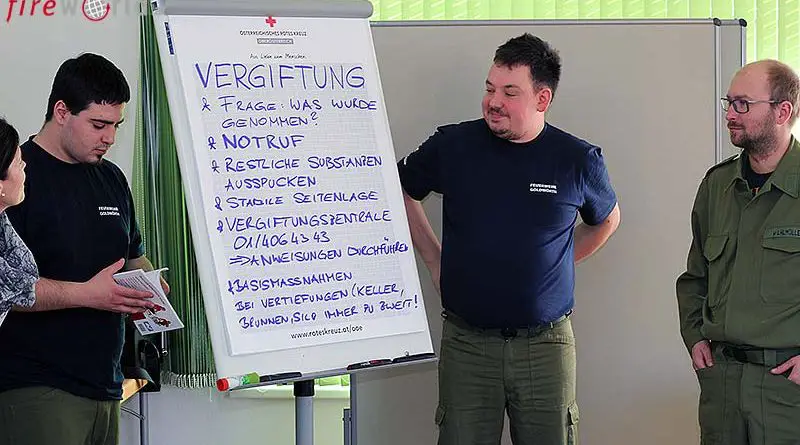 fireworld
ÖSTERREICHISCHES ROTES KREUZ
Aus Liebe zum Menschen.
VERGIFTUNG
FRAGE: WAS WURDE
GENOMMEN?
NOTRUF
RESTLICHE SUBSTANZEN
AUSSPUCKEN
STABILE SEITENLAGE
VERGIFTUNGSZENTRALE
01/406 43 43
⇒ ANWEISUNGEN DURCHFÜHREN
BASISMASSNAHMEN
BEI VERTIEFUNGEN (KELLER,
BRUNNEN, SILO IMMER ZU ZWEIT!
www.roteskreuz.at/ooe
FEUERWEHR
GOLDWÖRTH
FEUERWEHR
GOLDWÖRTH